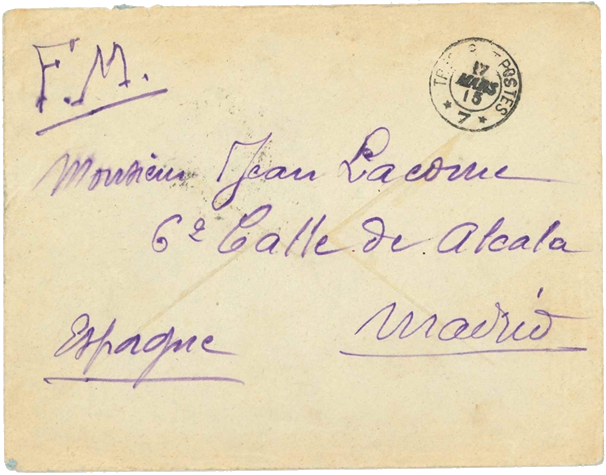 F.M.
POSTES
17
MARS
15
* 7 *
Monsieur Jean Lacome
62 Calle de Alcala
Madrid
Espagne